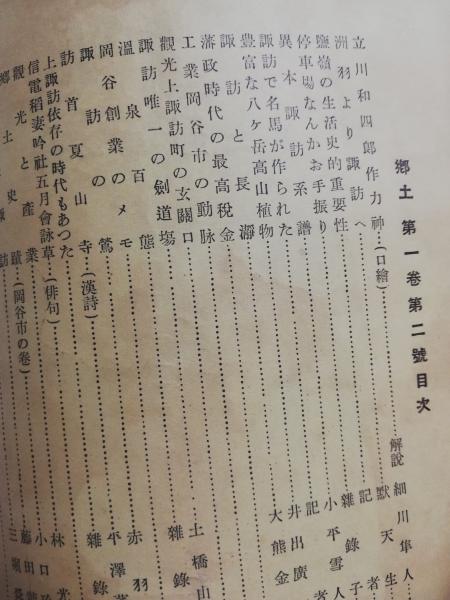 鄕土 第一卷第二號目次
立川和四郎作力神（口繪）……解說 細川隼人
洲羽より諏訪へ……默天生
鹽嶺の生活史的重要性……記者
停車場なんかお手振り……雜錄子
異本諏訪系譜……小平雪人
諏訪で名馬が作られた……記者
豊富な八ヶ岳高山植物……井出廣
諏訪と長瀞……大熊金
藩政時代の最高稅金
工業岡谷市の動脉……土橋山
觀光上諏訪町の玄關口……雜錄
諏訪唯一の劍道塲
溫泉百態……赤羽
岡谷創業のメモ……平澤
諏訪の鶯……雜錄
訪首夏山寺（漢詩）
上諏訪依存の時代もあつた……林光
信電稻妻吟社五月會詠草（俳句）……小口
觀光と產業……藤田
鄕土史蹟（岡谷市の卷）……三